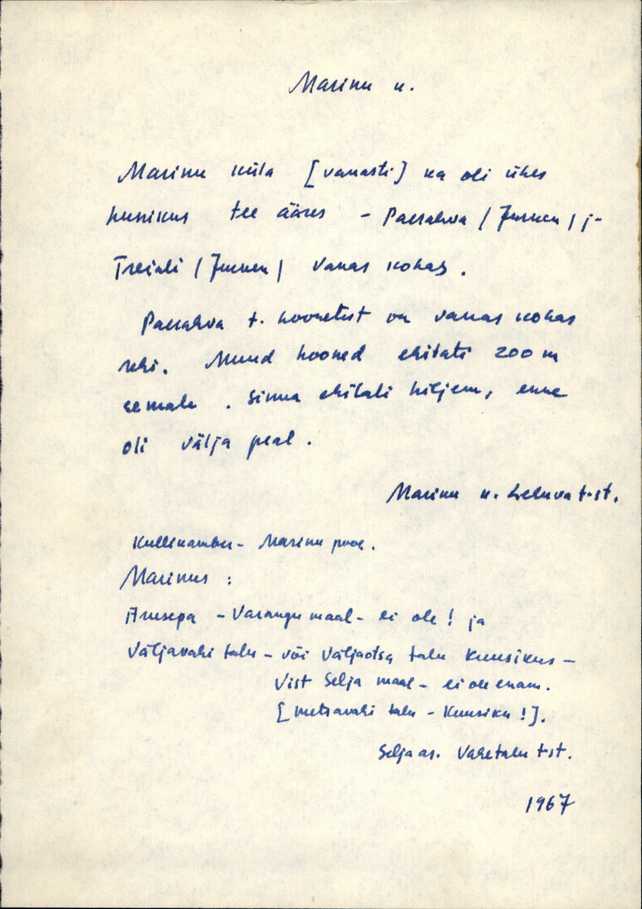 Marinu k.
Marinu küla [vanasti] ka oli ühes
hunikus tee ääres – Paesahva / Junnen / j-
Treiali / Junnen / vanas kohas.
Paesahva t. hoonetest on vanas kohas
rehi. Muud hooned ehitati 200 m
eemale. Sinna ehitati hiljem, enne
oli välja peal.
Marinu k. t-st.
Kullikamber – Marinu pool.
Marinus :
Arusepa – Varangu maal – ei ole! ja
Väljavahi talu – või Väljaotsa talu Kuusikus –
Vist Selja maal – ei ole enam.
[metsavahi talu – Kuusiku!].
Selja as. Vahetalu t-st.
1967